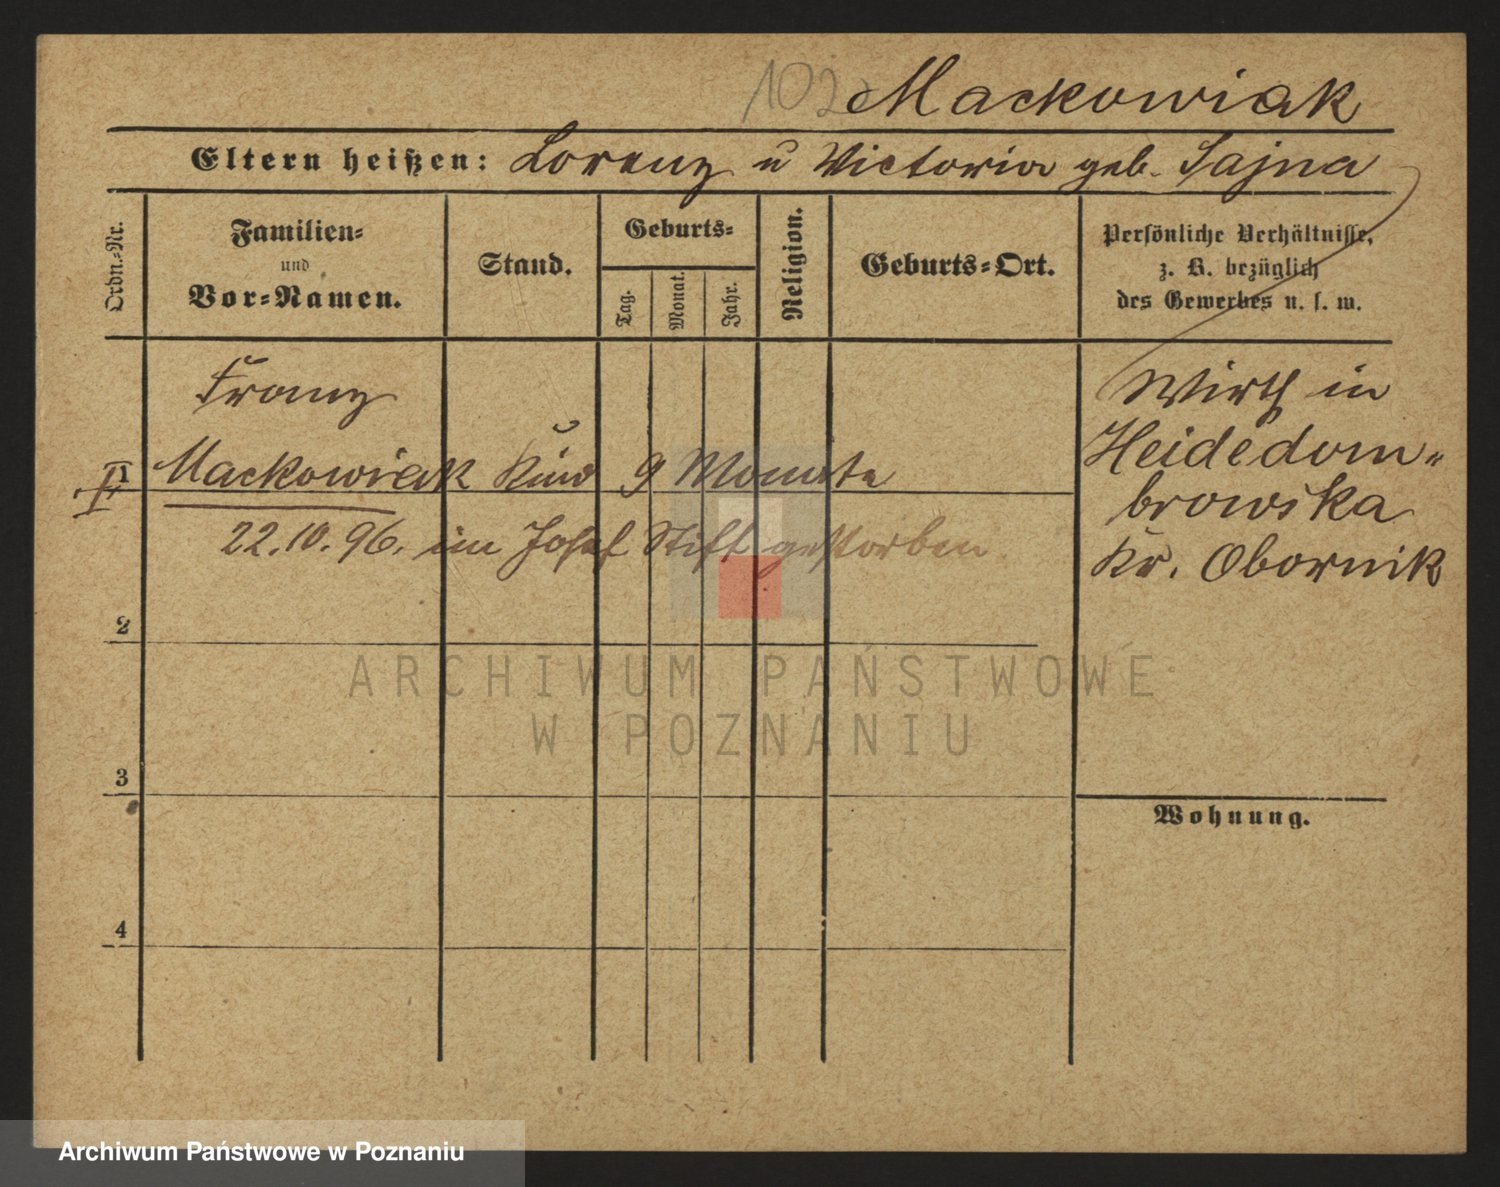 102 Mackowiak
Eltern heißen: Lorenz u Victoria geb. Sajna
Ordn.-Nr.
Familien-
und
Vor-Namen.
Stand.
Geburts-
Tag.
Monat.
Jahr.
Religion.
Geburts-Ort.
Persönliche Verhältnisse,
z. B. bezüglich
des Gewerbes u. s. w.
Franz
II Mackowiak Kind 9 Monate
I
22.10.96. im Josef Stift gestorben.
Wirth in
Heidedom-
browska
Kr. Obornik
2
3
4
Wohnung.
ARCHIWUM PAŃSTWOWE
W POZNANIU
Archiwum Państwowe w Poznaniu